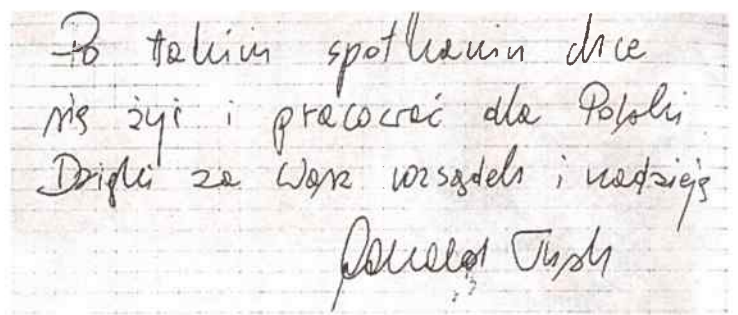 Po takim spotkaniu chce
się żyć i pracować dla Polski
Dzięki za Wasz rozsądek i nadzieję
Donald Tusk